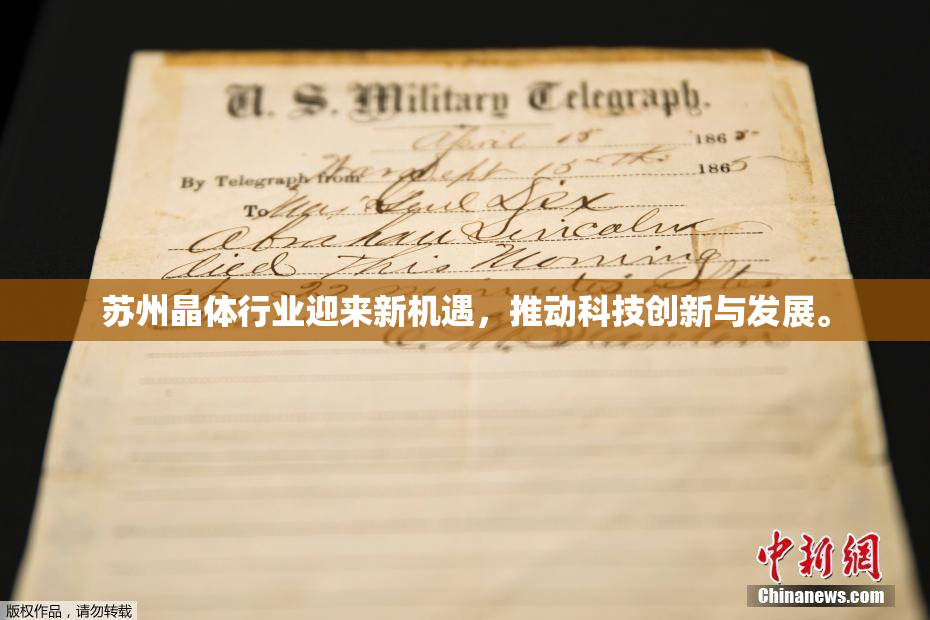 U. S. Military Telegraph.
April 15 1865
By Telegraph from War Dept 15th 1865
To Maj Genl Dix
Abraham Lincoln
died This Morning
at 22 minutes after
苏州晶体行业迎来新机遇，推动科技创新与发展。
E. M. Stanton
中新网
Chinanews.com
版权作品，请勿转载